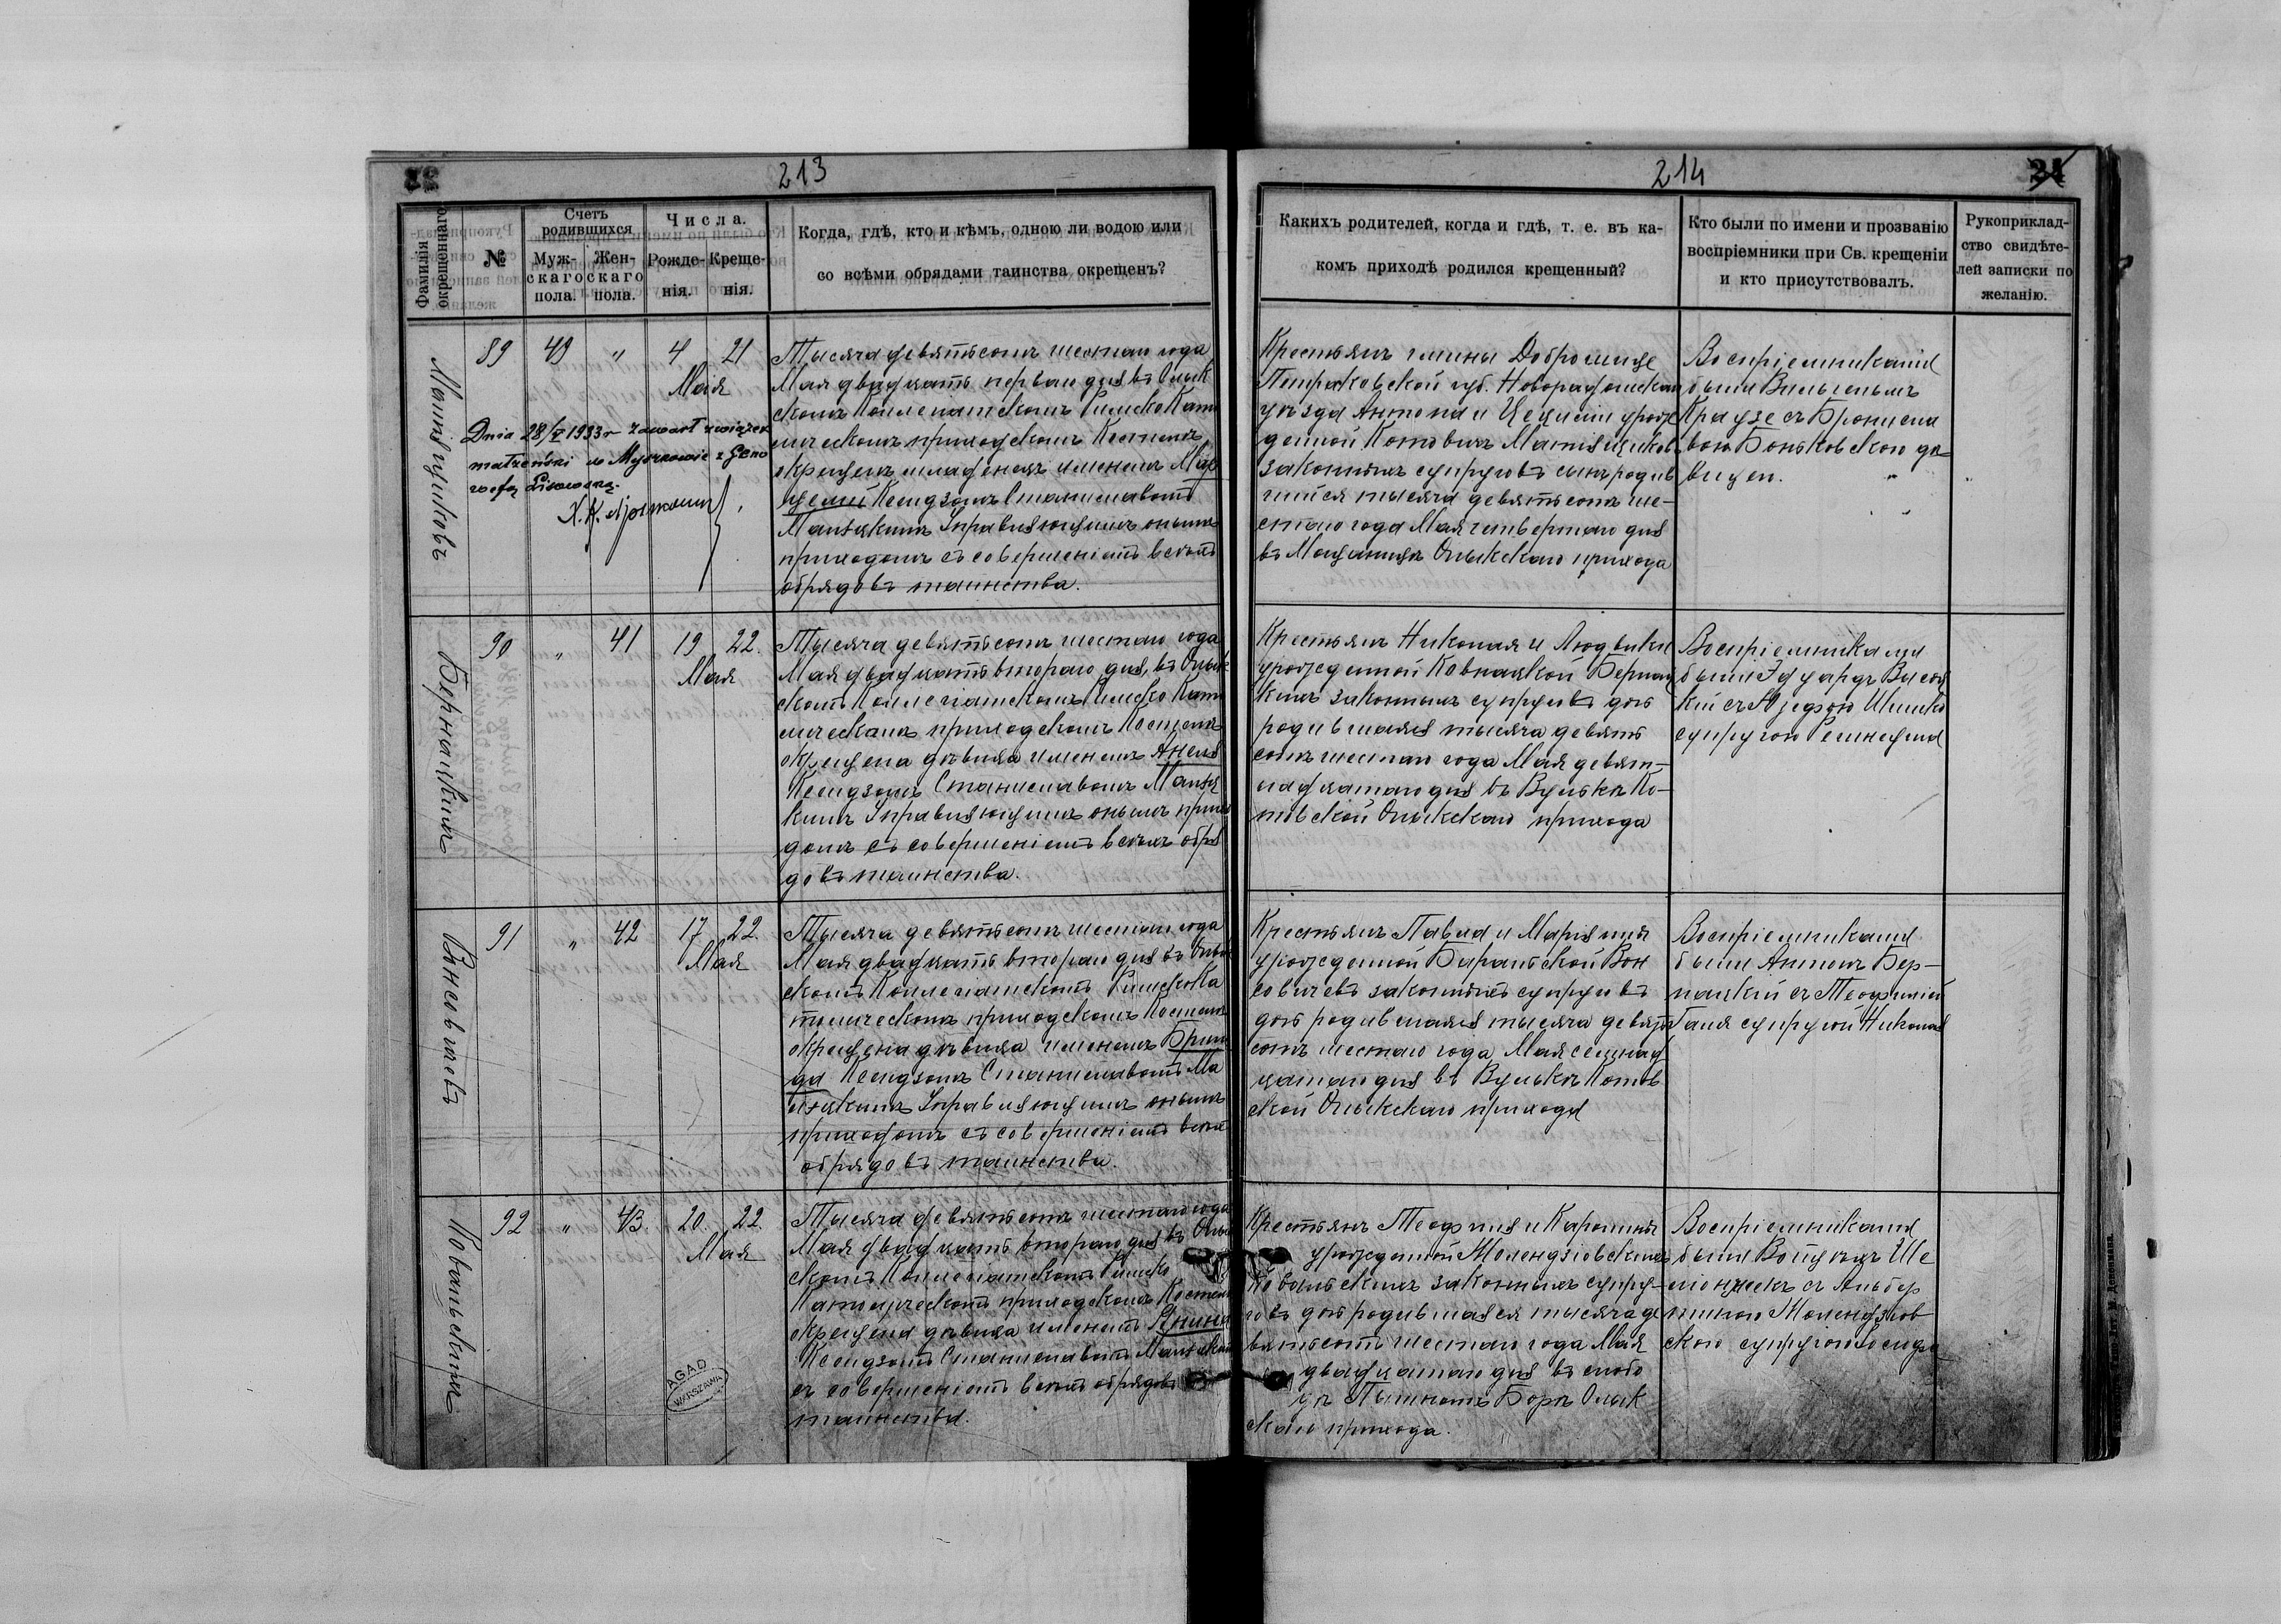 213
Фамилія окрещеннаго
№
Счетъ родившихся
Муж-скаго пола.
Жен-скаго пола.
Числа.
Рожде-нія.
Креще-нія.
Когда, гдѣ, кто и кѣмъ, одною ли водою или
со всѣми обрядами таинства окрещенъ?
89
49
"
4
21
Мая
Dnia 28/V 1933 r zawarł związek
małżeński w Myszkowie z Geno
wefą Lisowską.
Тысяча девятьсотъ шестаго года
Мая двадцать перваго дня въ Олык
скомъ Коллегіатскомъ Римско Като
лическомъ приходскомъ Костелѣ
окрещенъ младенецъ именемъ Мар
целій Ксендзомъ Станиславомъ
Управляющимъ онымъ
приходомъ съ совершеніемъ всѣхъ
обрядовъ таинства.
90
"
41
19
22.
Мая
Бернацкихъ
Тысяча девятьсотъ шестаго года
Мая двадцать втораго дня, въ Олык
скомъ Коллегіатскомъ Римско Като
лическомъ приходскомъ Костелѣ
окрещена дѣвица именемъ Анеля
Ксендзомъ Станиславомъ
кимъ Управляющимъ онымъ прихо
домъ съ совершеніемъ всѣхъ обря
довъ таинства.
91
"
42
17
22.
Мая
Вонсовичевъ
Тысяча девятьсотъ шестаго года
Мая двадцать втораго дня въ Олык
скомъ Коллегіатскомъ Римско Ка
толическомъ приходскомъ Костелѣ
окрещена дѣвица именемъ Бриги
да Ксендзомъ Станиславомъ
Управляющимъ онымъ
приходомъ съ совершеніемъ всѣхъ
обрядовъ таинства.
92
"
43.
20.
22.
Мая
Ковальскихъ
Тысяча девятьсотъ шестаго года
Мая двадцать втораго дня въ Олык
скомъ Коллегіатскомъ Римско
Католическомъ приходскомъ Костелѣ
окрещена дѣвица именемъ Янина
Ксендзомъ Станиславомъ
съ совершеніемъ всѣхъ обрядовъ
таинства.
AGAD
WARSZAWA
214
Какихъ родителей, когда и гдѣ, т. е. въ ка-
комъ приходѣ родился крещенный?
Кто были по имени и прозванію
воспріемники при Св. крещеніи
и кто присутствовалъ.
Рукоприклад-
ство свидѣте-
лей записки по
желанію.
Крестьянъ гмины Доброшице
Петраковской губ. Новорадомскаго
уѣзда Антона и Цециліи урож
денной Котовичъ
законныхъ супруговъ сынъ родив
шійся тысяча девятьсотъ ше-
стаго года Мая четвертаго дня
въ Олыкскаго прихода
Воспріемниками
были Вильгельмъ
Краузе съ Брониcла
вою Боньковскою дѣ-
вицею.
Крестьянъ Николая и Людвики
урожденной Бернац
кихъ законныхъ супруговъ дочь
родившаяся тысяча девять
сотъ шестаго года Мая девят-
надцатаго дня въ Вулькѣ Ко-
товской Олыкскаго прихода
Воспріемниками
были Эдуардъ Высоц
кій съ Юзефою
супругою
Крестьянъ Павла и Маріянны
урожденной Вон
совичевъ законныхъ супруговъ
дочь родившаяся тысяча девять
сотъ шестаго года Мая семнад
цатаго дня въ Вулькѣ Котов
ской Олыкскаго прихода
Воспріемниками
были Антонъ Бер-
нацкій съ Теофилій
супругой Николая
Крестьянъ Теофиля и Каролины
урожденной Жолендзіовскихъ
Ковальскихъ законныхъ супру-
говъ дочь родившаяся тысяча де
вятьсотъ шестаго года Мая
двадцатаго дня въ слобо
дѣ Пышномъ Борѣ Олык
скаго прихода.
Воспріемниками
были Войцѣхъ Ше
съ Альбер
тиною Жолендзіов
скою супругою